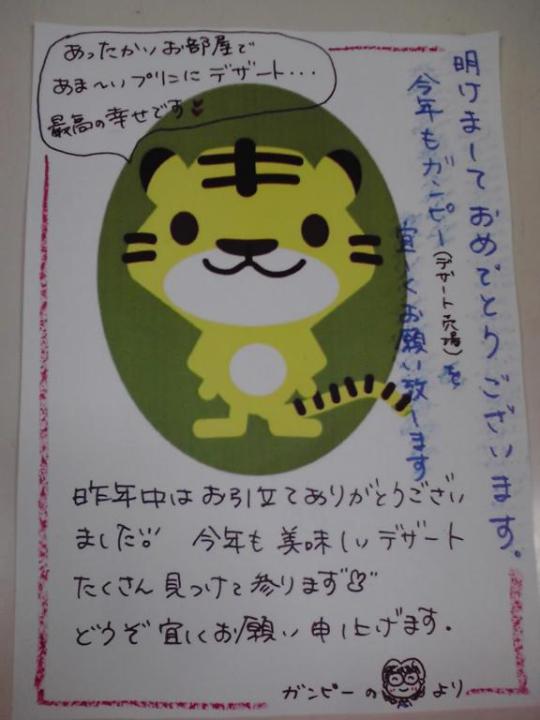 あったかいお部屋で
あま〜いプリンにデザート・・・
最高の幸せです♥
明けましておめでとうございます。
今年もガンピー(デザート売場)を
宜しくお願い致します
昨年中はお引立てありがとうござい
ました!! 今年も美味しいデザート
たくさん見つけて参ります♡"
どうぞ宜しくお願い申し上げます。
ガンピーの より